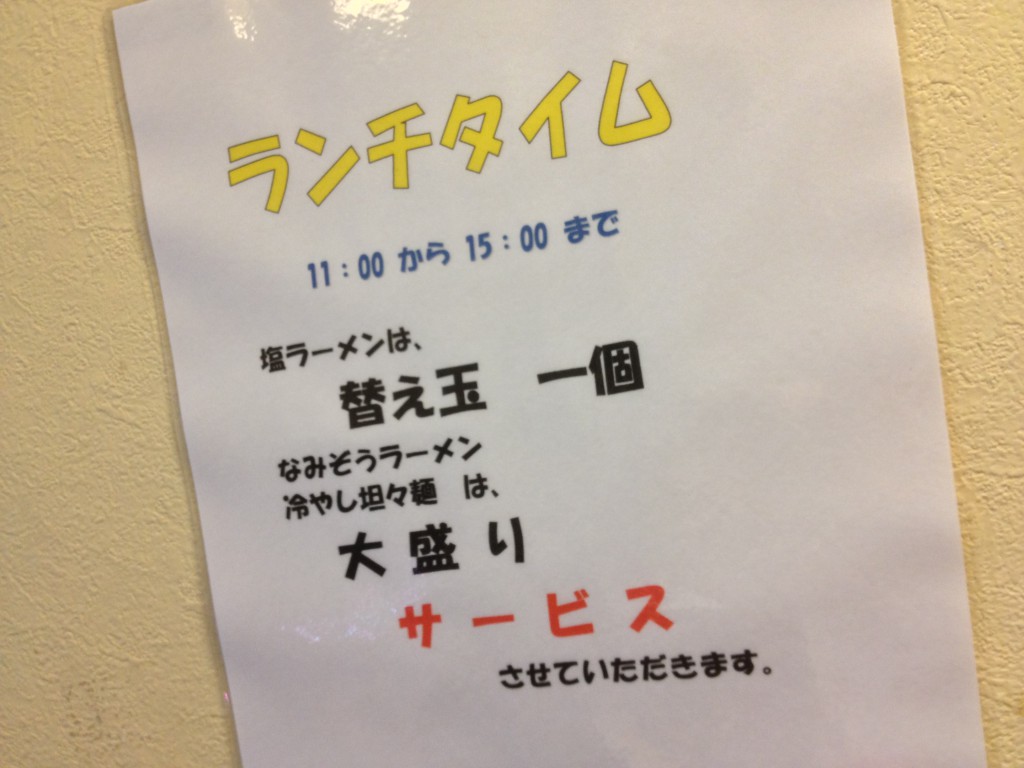 ランチタイム
11：00 から 15：00 まで
塩ラーメンは、
替え玉　一個
なみそうラーメン
冷やし坦々麺　は、
大 盛 り
サ ー ビ ス
させていただきます。